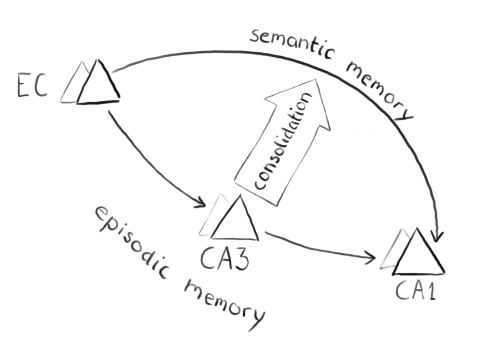 semantic memory
EC
consolidation
CA3
episodic memory
CA1